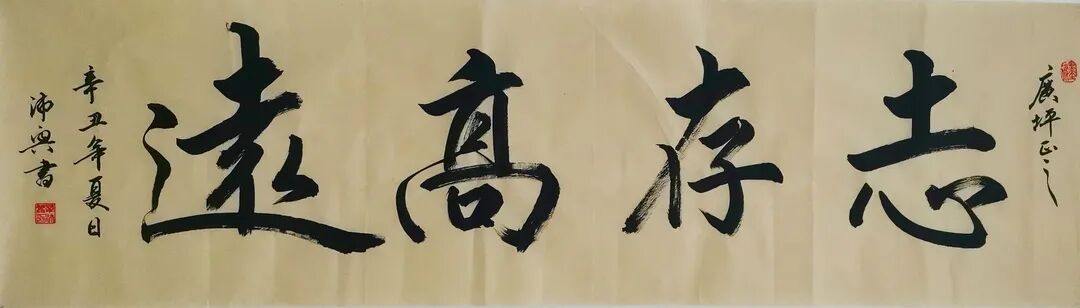 廣坪正之
志存高遠
辛丑年夏日
沛興書